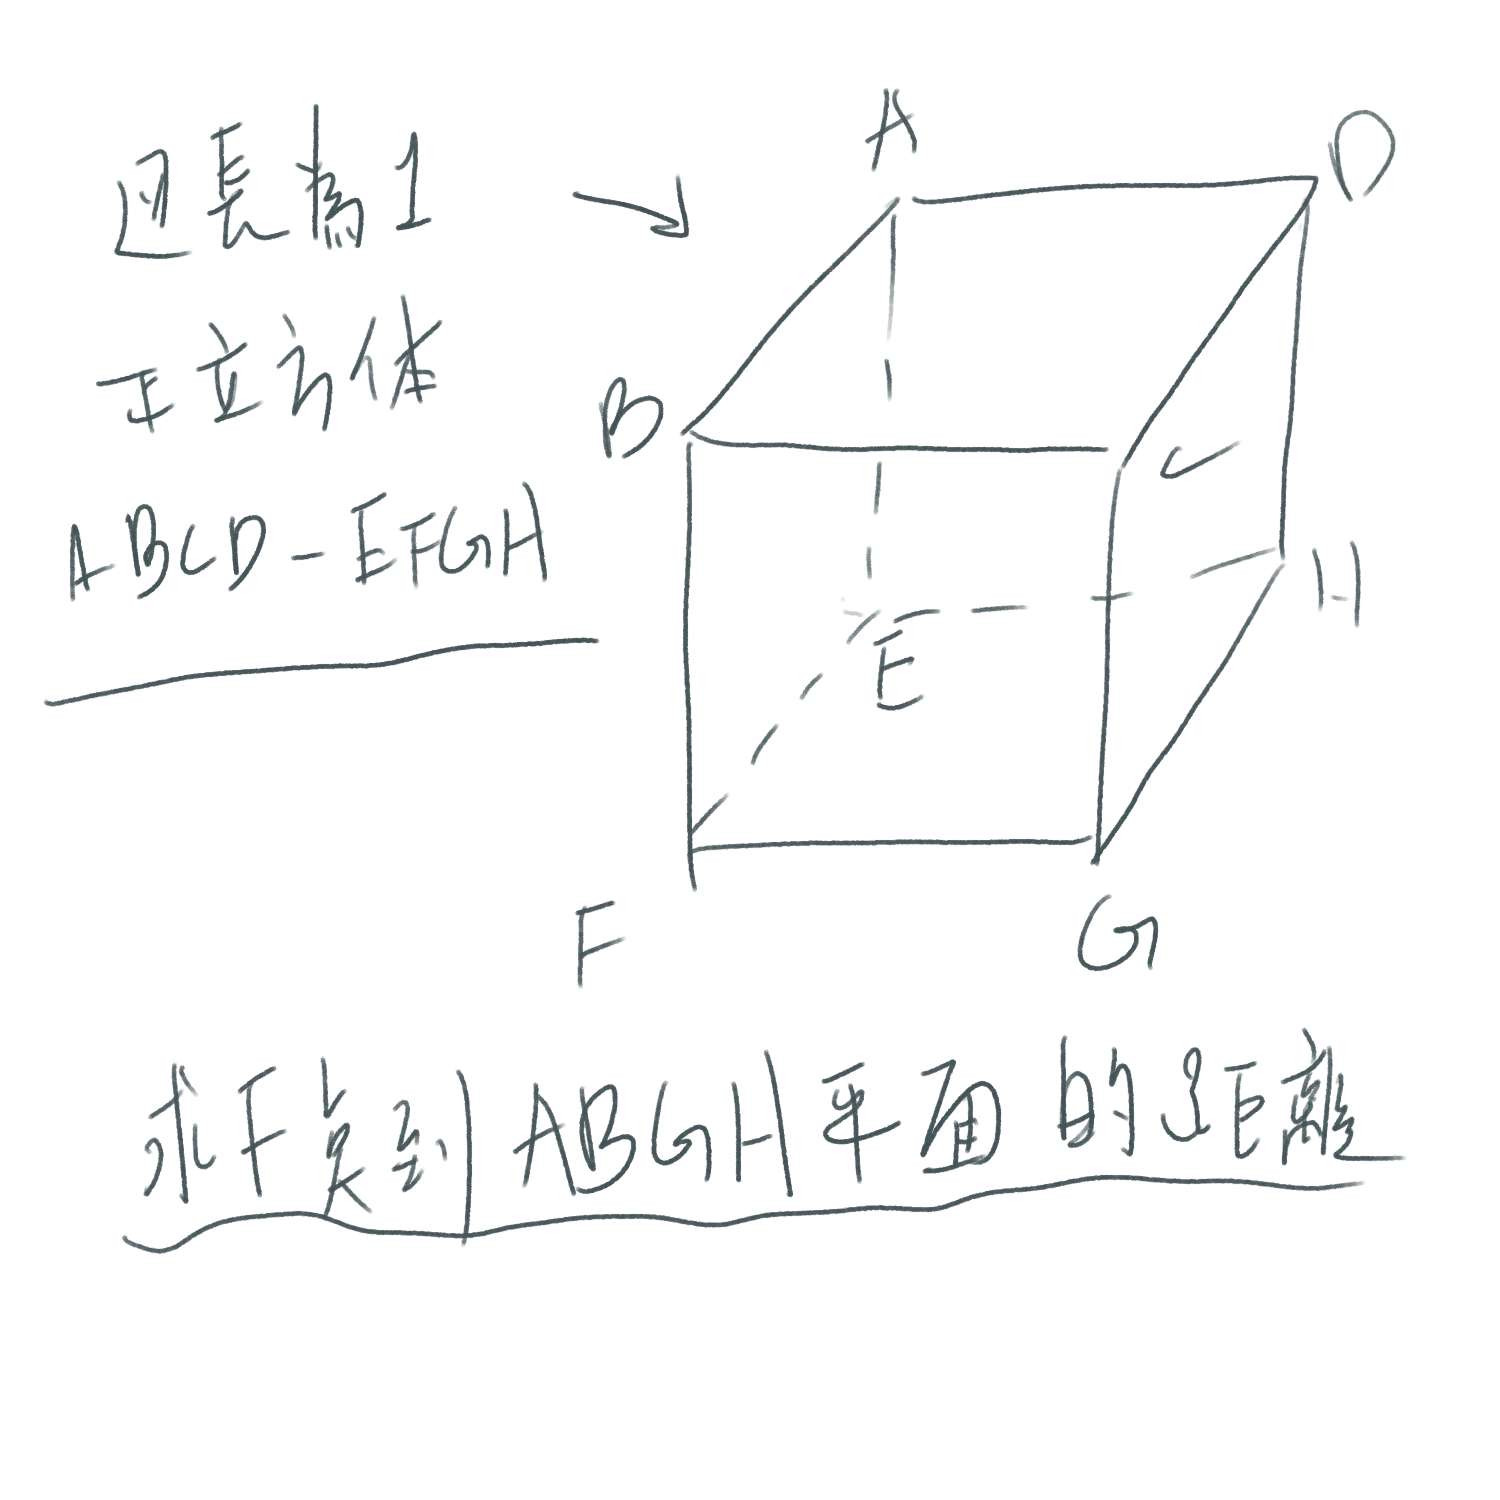 边長為1
正立方体
ABCD-EFGH
A
D
B
C
H
E
F
G
求F点到ABGH平面的距離